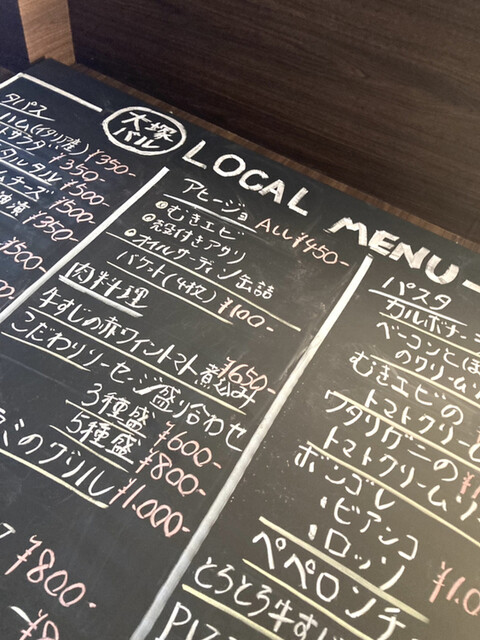 大塚
バル
LOCAL MENU
タパス
ハム(イタリア産) ¥350-
¥350-
タルタル ¥500-
ムチーズ ¥500-
油漬 ¥350-
¥500-
アヒージョ ALL¥450-
むきエビ
殻付きアサリ
オイルサーディン缶詰
バケット(4枚) ¥100-
肉料理
牛すじの赤ワイントマト煮込み ¥650-
こだわりソーセージ盛り合わせ
3種盛 ¥600-
5種盛 ¥800-
のグリル ¥1.000-
¥800-
パスタ
カルボナー
ベーコンとほ
のクリーム
むきエビの
トマトクリー
ワタリガニの
トマトクリーム
ボンゴレ
・ビアンコ
・ロッソ
ペペロンチ
とろとろ牛すじ